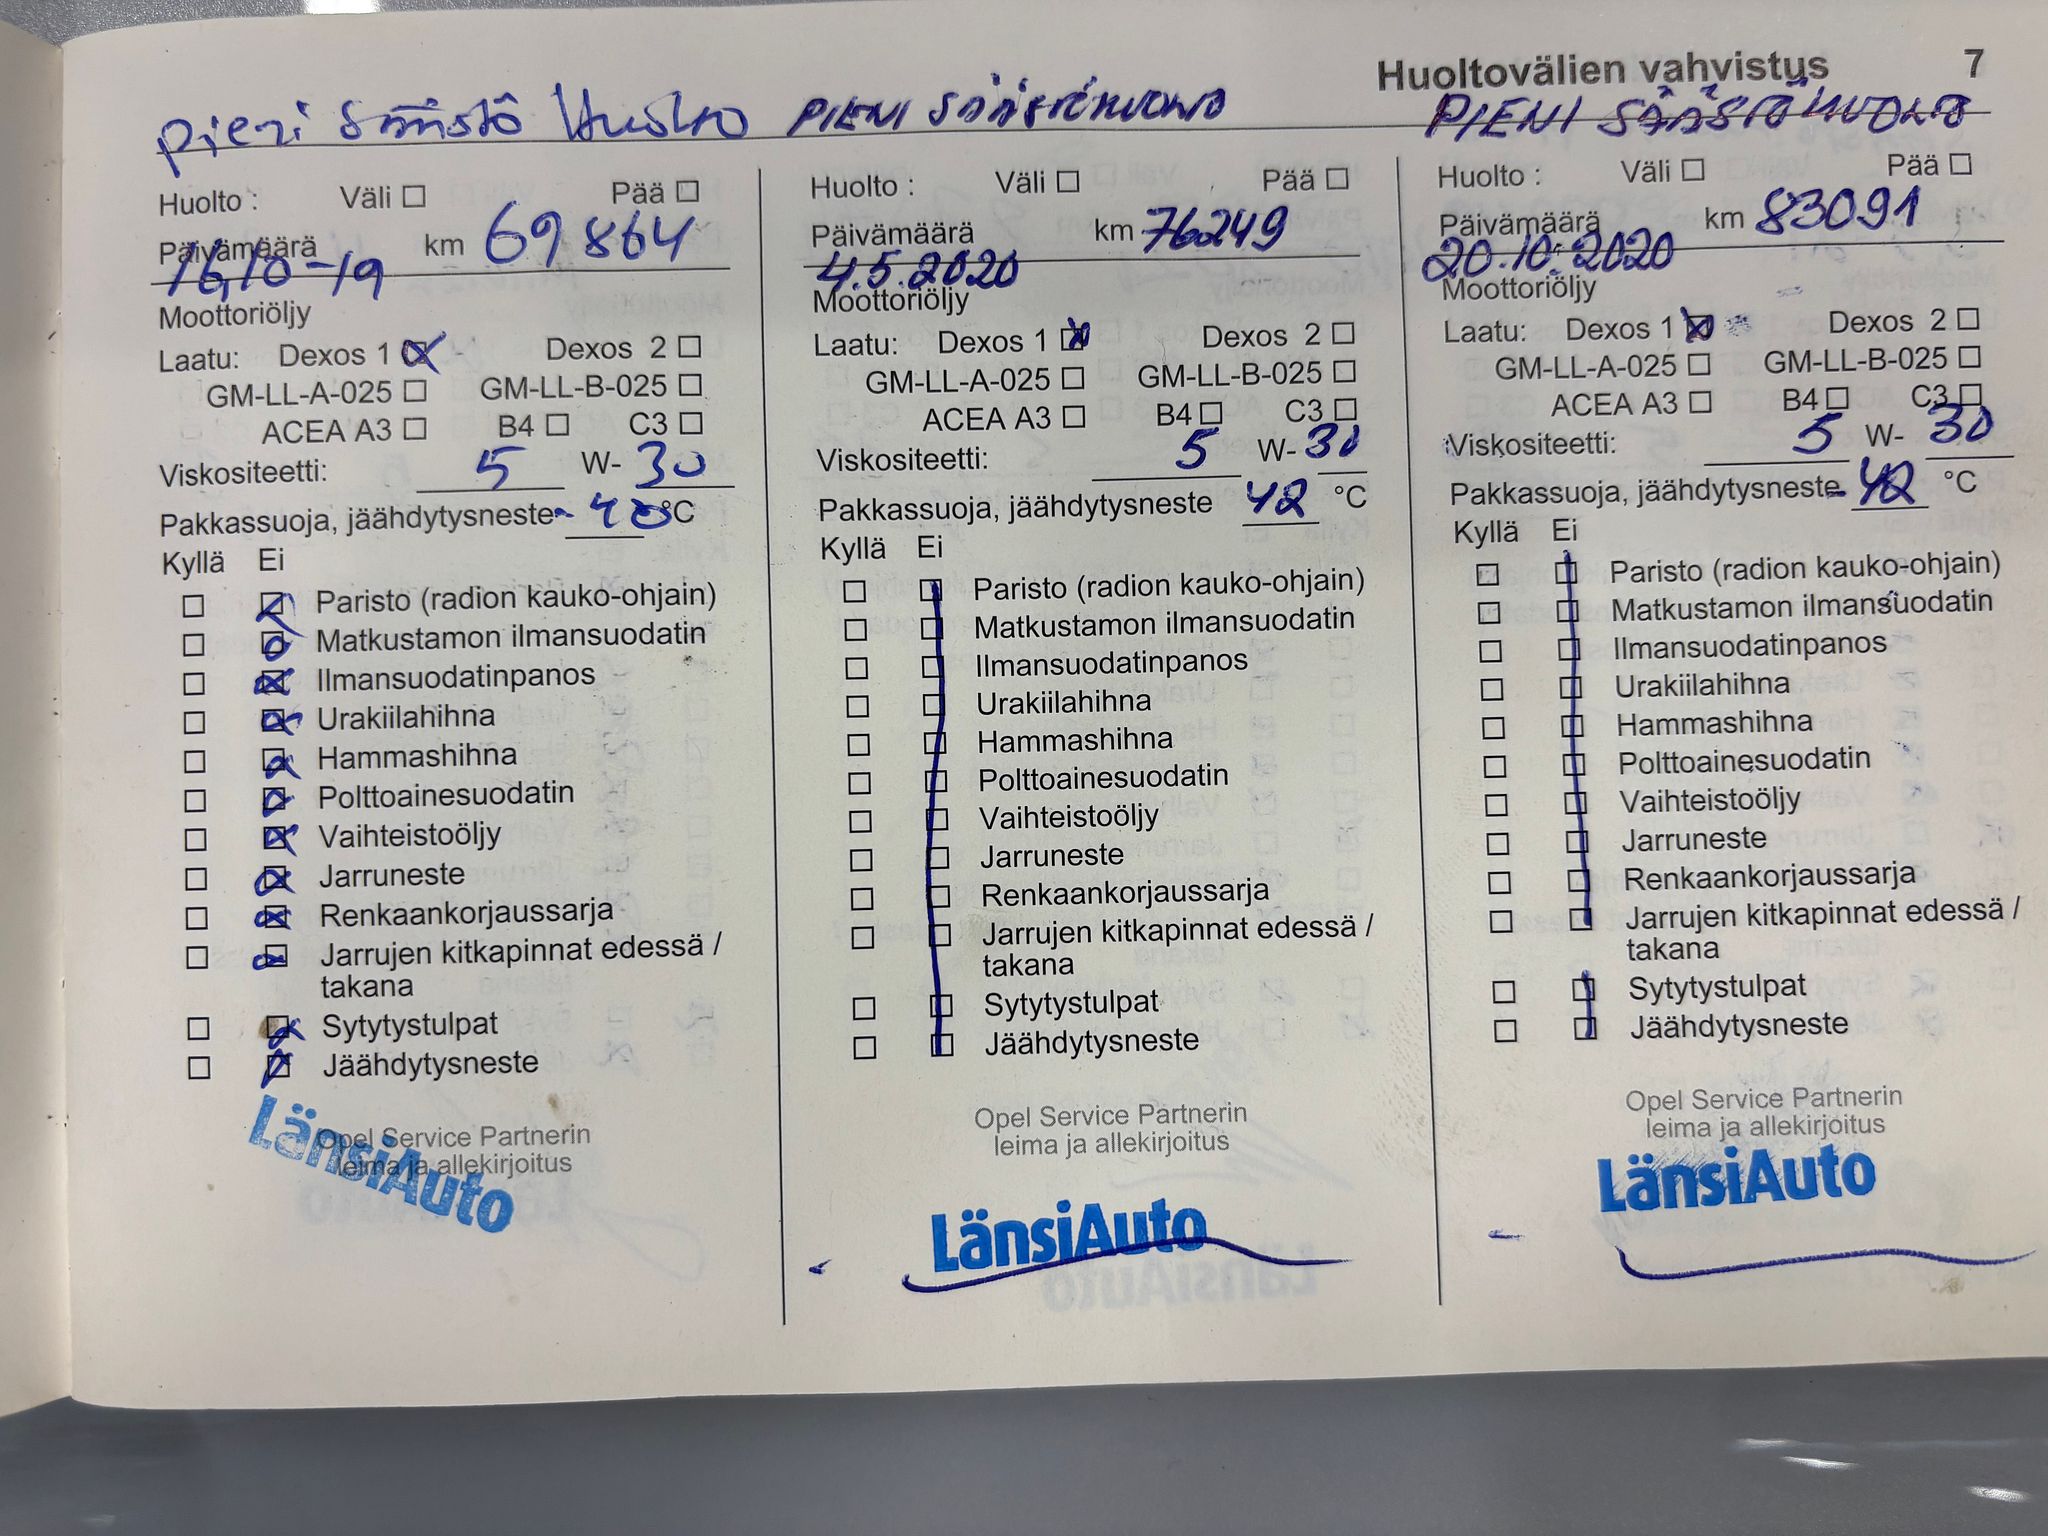 Huoltovälien vahvistus 7
pieni säästö Huolto
Huolto : Väli Pää
Päivämäärä km 69864
16,10-19
Moottoriöljy
Laatu: Dexos 1 Dexos 2
GM-LL-A-025 GM-LL-B-025
ACEA A3 B4 C3
Viskositeetti: 5 W- 30
Pakkassuoja, jäähdytysneste - 40 °C
Kyllä Ei
Paristo (radion kauko-ohjain)
Matkustamon ilmansuodatin
Ilmansuodatinpanos
Urakiilahihna
Hammashihna
Polttoainesuodatin
Vaihteistoöljy
Jarruneste
Renkaankorjaussarja
Jarrujen kitkapinnat edessä /
takana
Sytytystulpat
Jäähdytysneste
Opel Service Partnerin
leima ja allekirjoitus
LänsiAuto
PIENI SÄÄSTÖHUOLTO
Huolto : Väli Pää
Päivämäärä km 76249
4.5.2020
Moottoriöljy
Laatu: Dexos 1 Dexos 2
GM-LL-A-025 GM-LL-B-025
ACEA A3 B4 C3
Viskositeetti: 5 W- 30
Pakkassuoja, jäähdytysneste 42 °C
Kyllä Ei
Paristo (radion kauko-ohjain)
Matkustamon ilmansuodatin
Ilmansuodatinpanos
Urakiilahihna
Hammashihna
Polttoainesuodatin
Vaihteistoöljy
Jarruneste
Renkaankorjaussarja
Jarrujen kitkapinnat edessä /
takana
Sytytystulpat
Jäähdytysneste
Opel Service Partnerin
leima ja allekirjoitus
LänsiAuto
PIENI SÄÄSTÖHUOLTO
Huolto : Väli Pää
Päivämäärä km 83091
20.10.2020
Moottoriöljy
Laatu: Dexos 1 Dexos 2
GM-LL-A-025 GM-LL-B-025
ACEA A3 B4 C3
Viskositeetti: 5 W- 30
Pakkassuoja, jäähdytysneste - 42 °C
Kyllä Ei
Paristo (radion kauko-ohjain)
Matkustamon ilmansuodatin
Ilmansuodatinpanos
Urakiilahihna
Hammashihna
Polttoainesuodatin
Vaihteistoöljy
Jarruneste
Renkaankorjaussarja
Jarrujen kitkapinnat edessä /
takana
Sytytystulpat
Jäähdytysneste
Opel Service Partnerin
leima ja allekirjoitus
LänsiAuto